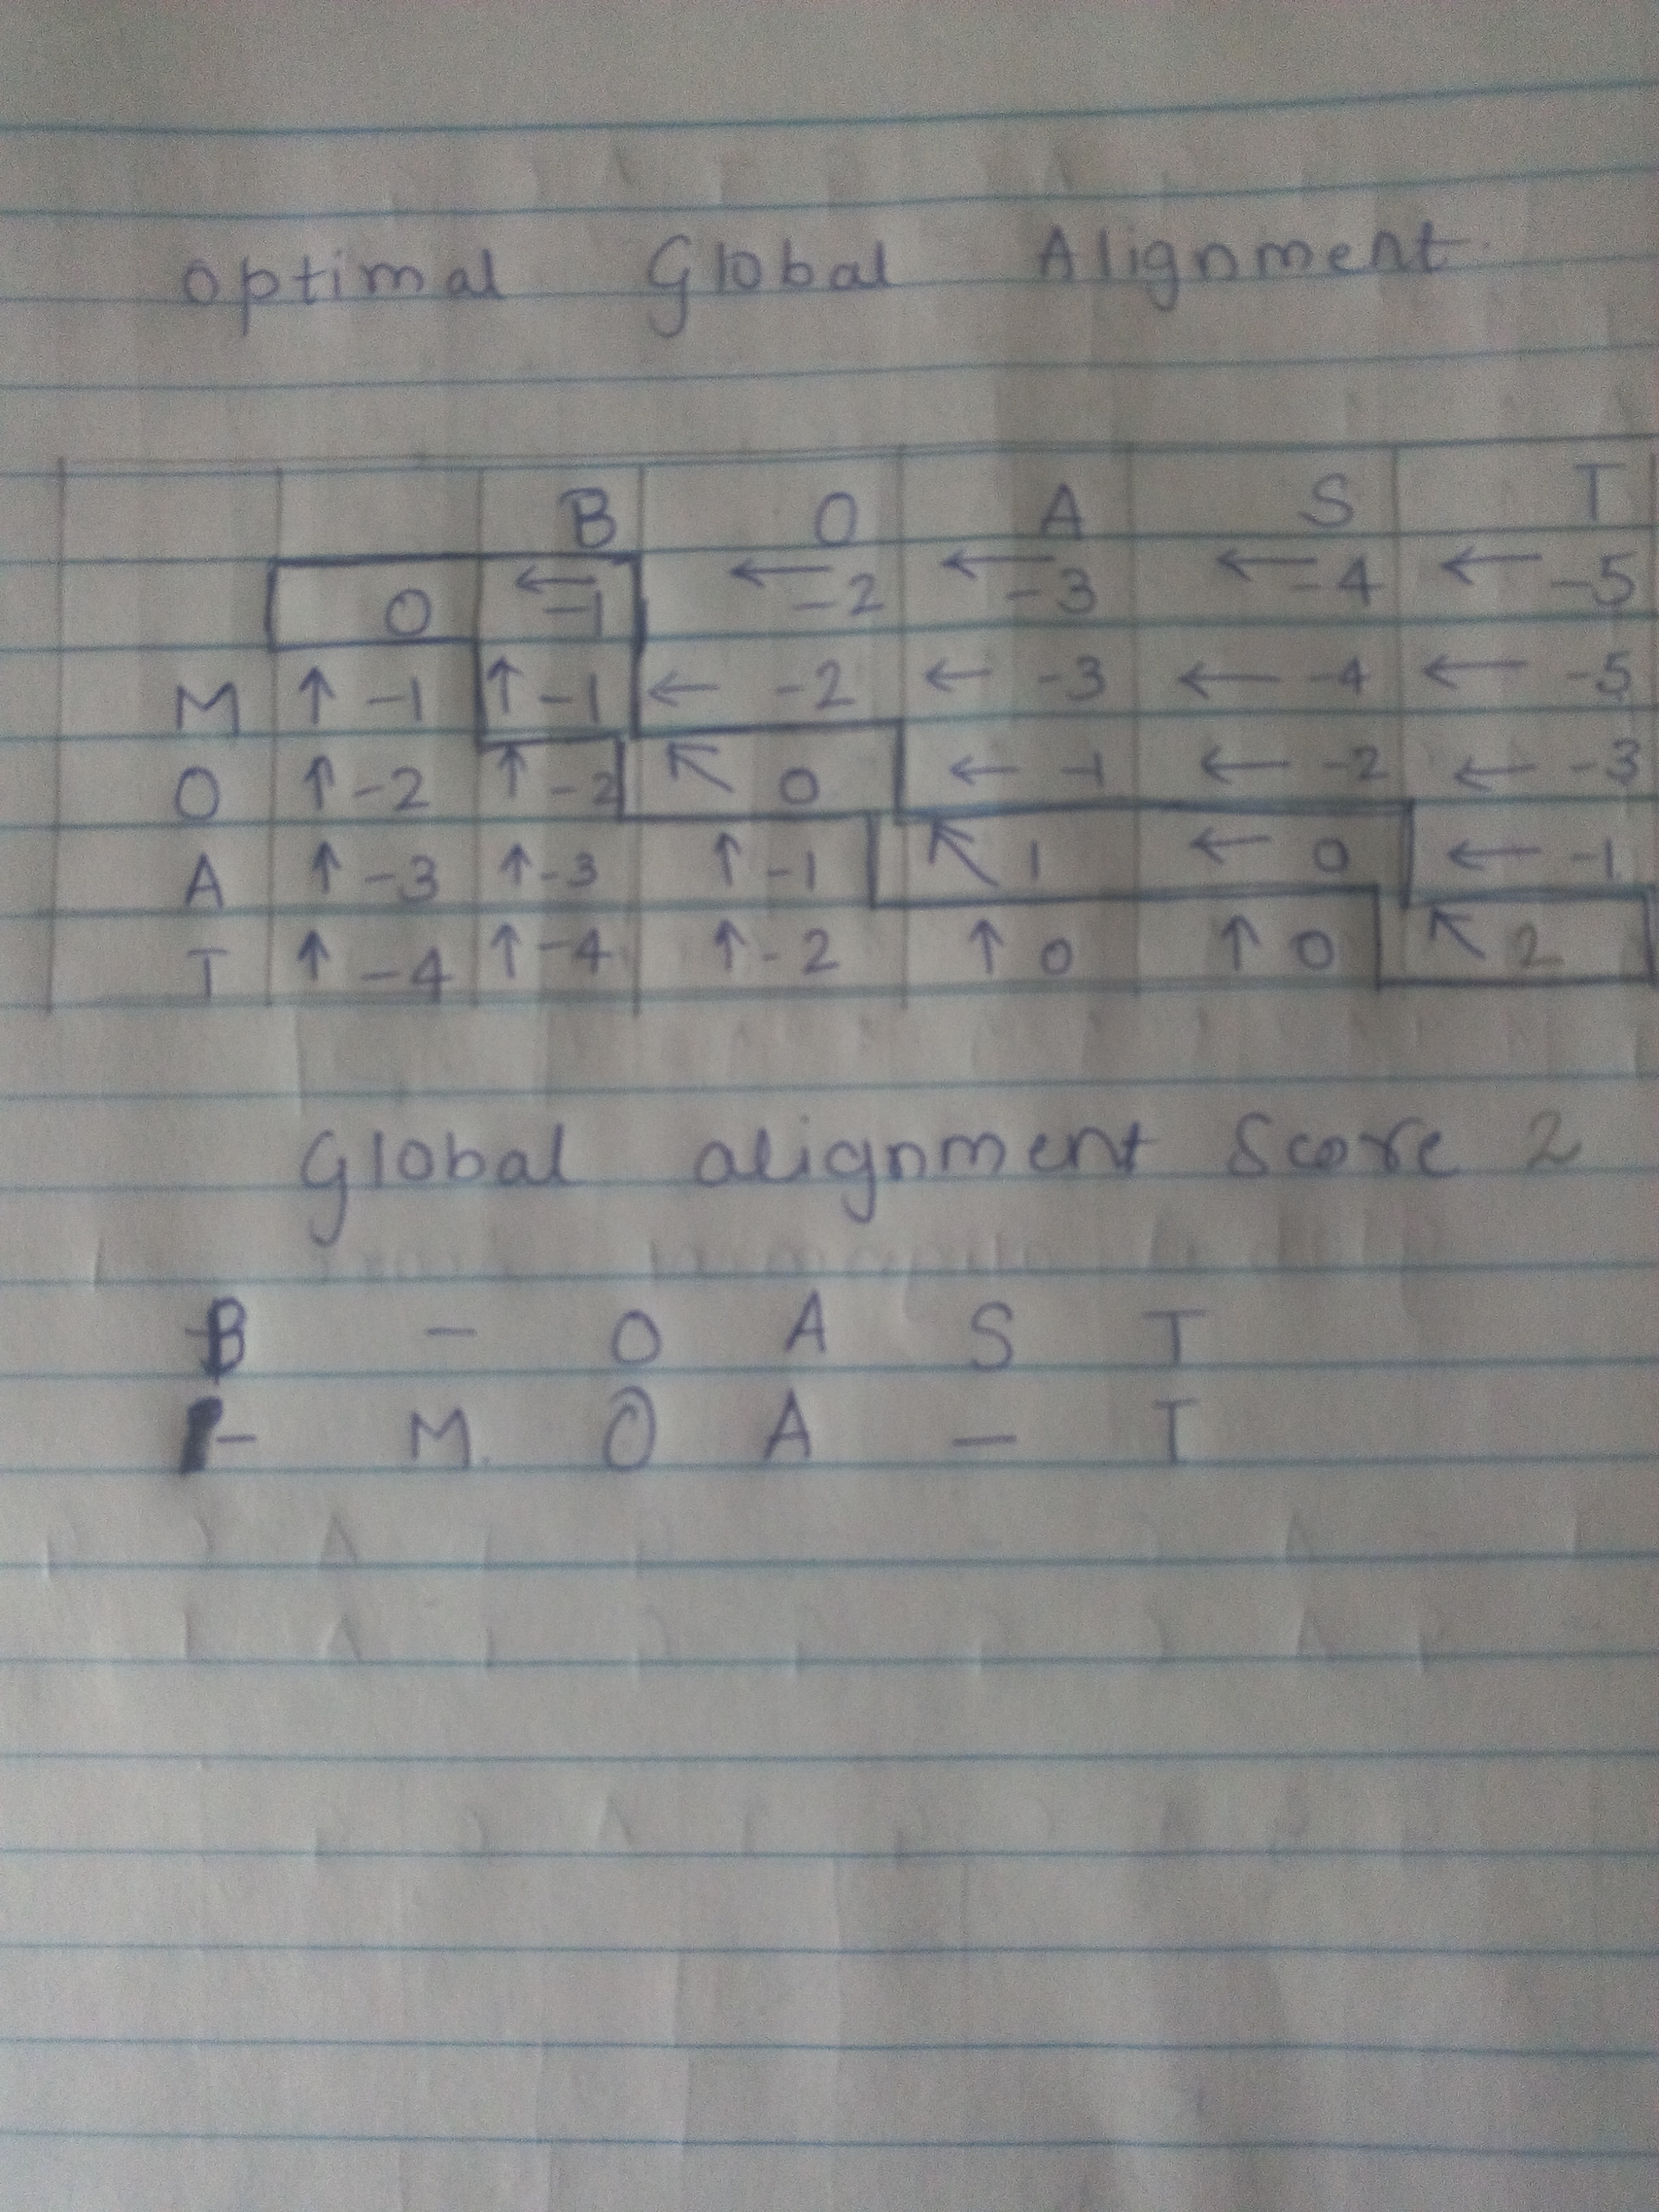 Optimal Global Alignment
B O A S T
0 ← -1 ← -2 ← -3 ← -4 ← -5
M ↑ -1 ↑ -1 ← -2 ← -3 ← -4 ← -5
O ↑ -2 ↑ -2 ↖ 0 ← -1 ← -2 ← -3
A ↑ -3 ↑ -3 ↑ -1 ↖ 1 ← 0 ← -1
T ↑ -4 ↑ -4 ↑ -2 ↑ 0 ↑ 0 ↖ 2
Global alignment Score 2
B - O A S T
- M O A - T